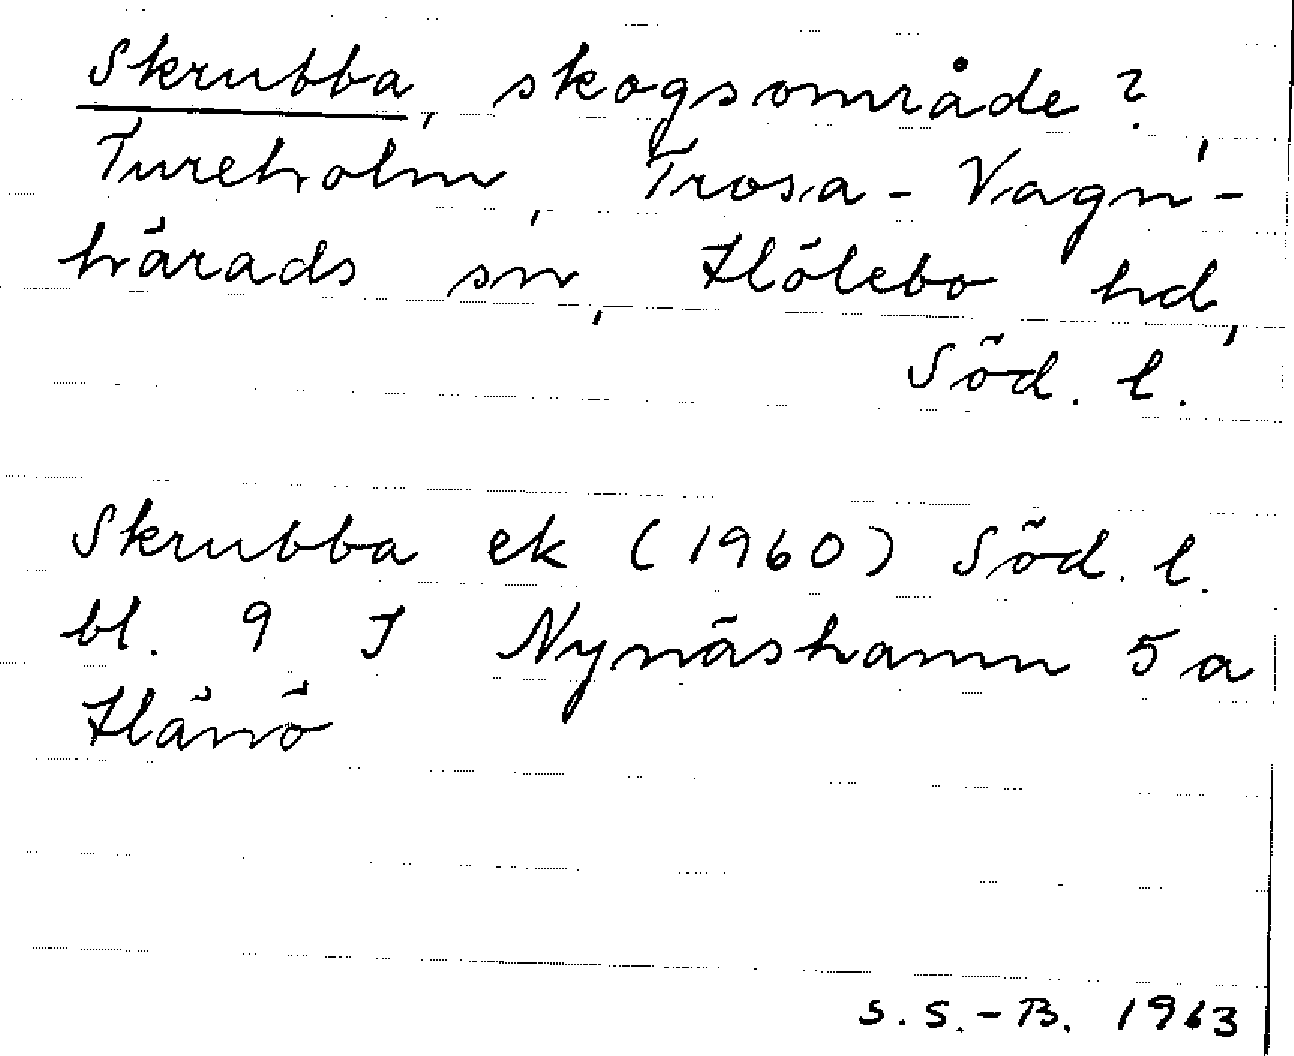 Skrubba, skogsområde?,
Tureholm, Trosa-Vagn-
härads sn, Hölebo hd,
Söd. l.
Skrubba ek (1960) Söd. l.
bl. 9 I Nynäshamn 5 a
Hänö
S.S.-B. 1963